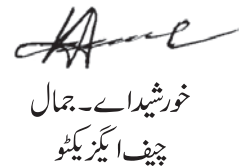 خورشید اے۔ جمال
چیف ایگزیکٹو